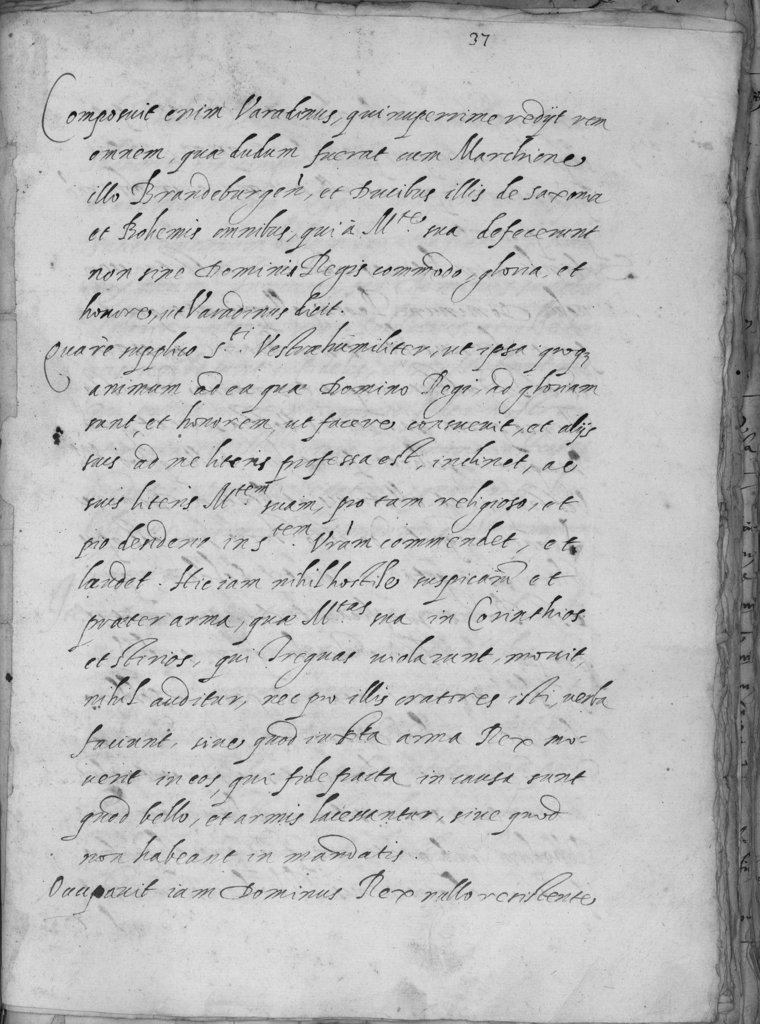 37
Composuit enim Varadinus, qui nuperrime redijt rem
omnem, quæ dudum fuerat cum Marchione
illo Brandeburgeñ, et Ducibus illis de Saxonia
et Bohemis omnibus, qui à M.te sua defecerunt
non sine Dominis Regis commodo, gloria, et
honore, ut Varadinus dicit.
Quare supplico S.ti Vestræ humiliter, ut ipsa quoq;
animum ad ea quæ Domino Regi, ad gloriam
sunt, et honorem, ut facere consuevit, et alijs
suis ad me literis professa est, inclinet, ac
suis literis M.tem suam, pro tam religioso, et
pio desiderio in S.tem Vram commendet, et
laudet. Hic iam nihil hostile suspicam̃ et
præter arma, quæ M.tas sua in Corinthios
et Stirios, qui Treguas violarunt, movit,
nihil auditur, nec pro illis oratores isti verba
faciunt, sive quod iuxta arma Rex mo-
verit in eos, qui fide fracta in causa sunt
quod bello, et armis lacessantur, sive quod
non habeant in mandatis.
Occupavit iam Dominus Rex nullo resistente